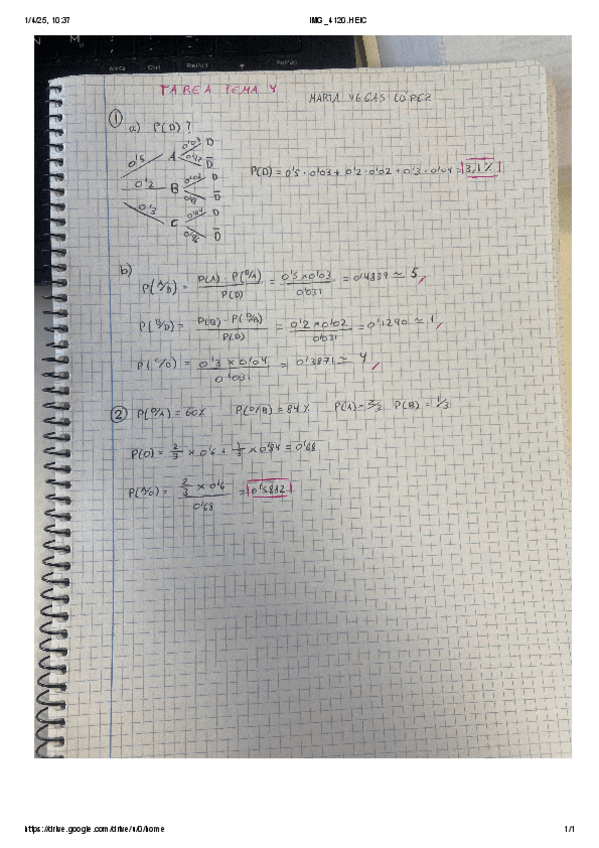 1/4/25, 10:37
IMG_4120.HEIC
N M
AltGr Ctrl RePág AvPág
TAREA TEMA 4
MARTA VEGAS LÓPEZ
① a) P(D)?
0'5 A 0'03 D
0'97 D̅
0'2 B 0'02 D
0'98 D̅
0'3 C 0'04 D
0'96 D̅
P(D) = 0'5 · 0'03 + 0'2 · 0'02 + 0'3 · 0'04 = 3,1%
b) P(A/D) = P(A) · P(D/A) / P(D) = 0'5 x 0'03 / 0'031 = 0'4839 ≃ 5
P(B/D) = P(B) · P(D/B) / P(D) = 0'2 x 0'02 / 0'031 = 0'1290 ≃ 1
P(C/D) = 0'3 x 0'04 / 0'031 = 0'3871 ≃ 4
② P(D/A) = 60% P(D/B) = 84% P(A) = 2/3 P(B) = 1/3
P(D) = 2/3 x 0'6 + 1/3 x 0'84 = 0'68
P(A/D) = 2/3 x 0'6 / 0'68 = 0'5882
https://drive.google.com/drive/u/0/home
1/1